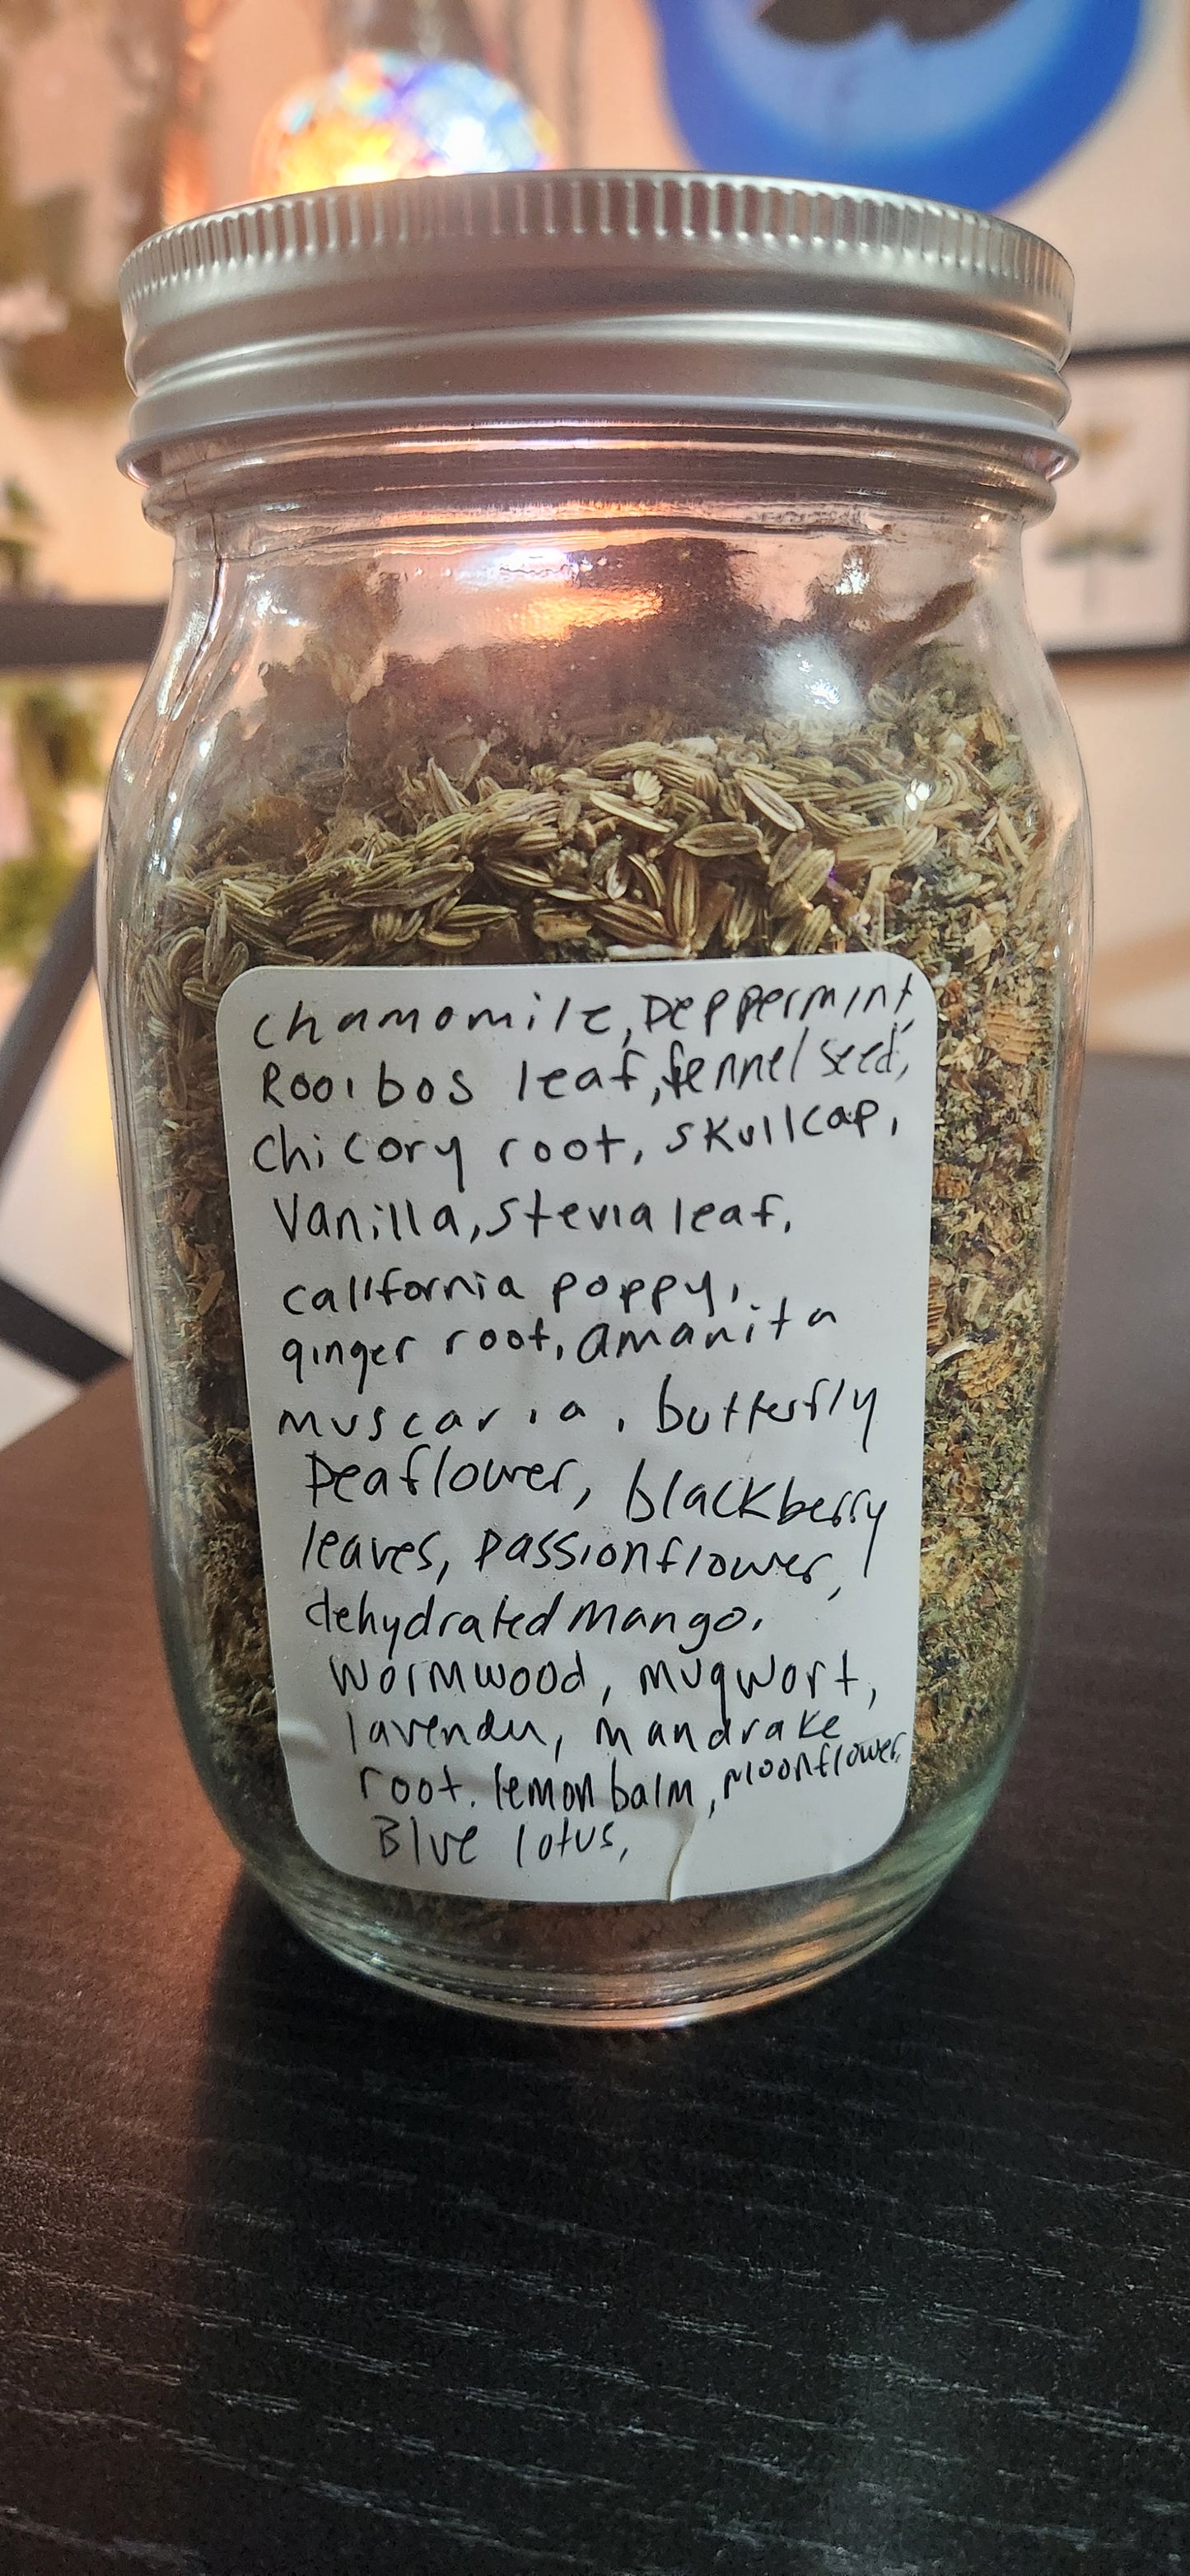 chamomile, peppermint,
Rooibos leaf, fennel seed,
Chicory root, skullcap,
Vanilla, stevia leaf.
california poppy,
ginger root, amanita
muscaria, butterfly
peaflower, blackberry
leaves, passionflower,
dehydrated mango.
wormwood, mugwort,
lavender, mandrake
root. lemon balm, Moonflower,
Blue lotus,